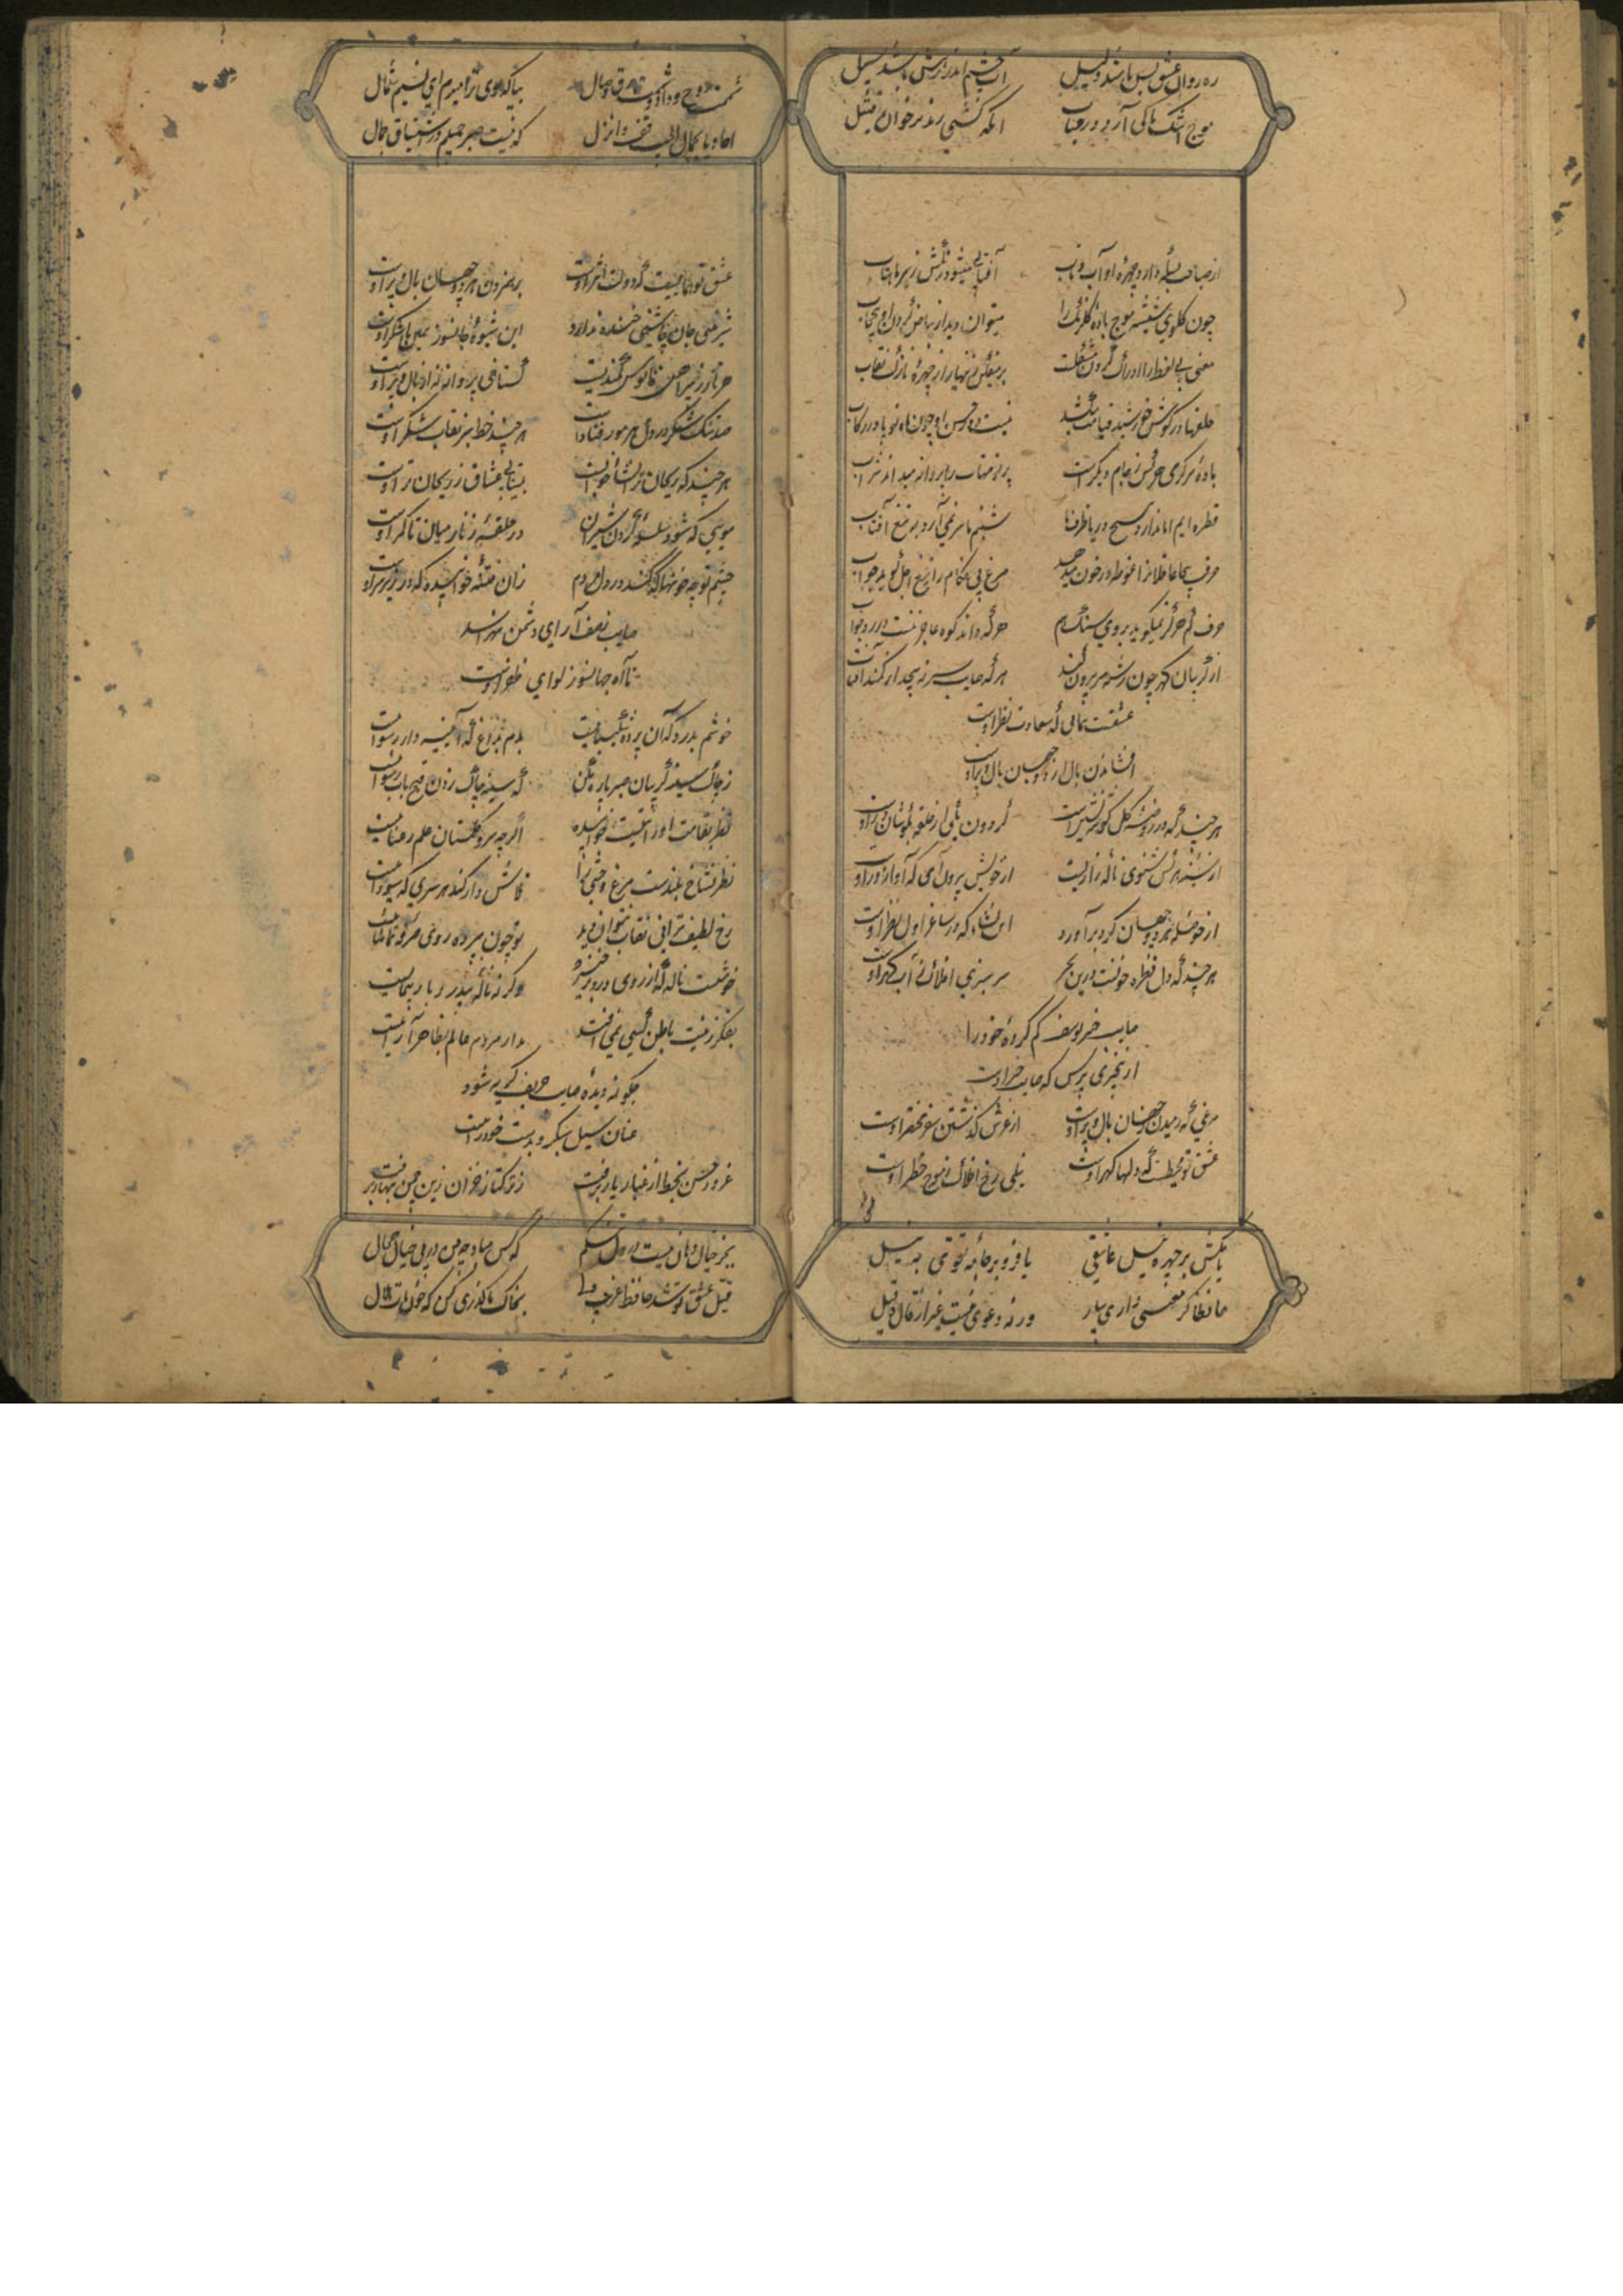 ره روان عشق بس باشد دلیل آب چشم اندر رهش باشد سبیل
موج اشک ما کی آرد در حساب آنکه کشتی راند بر خون قتیل
از صفا بسکه دارد چهره او آب و تاب آفتابی میشود رنگش ز سیر ماهتاب
چون گلوی شیشه موج باده گلرنگ را میتوان دیدار بیاض گردن او بی حجاب
معنی بی لفظ را ادراک کردن مشکلست بر میفکن زینهار از چهره نازک نقاب
حلقها در گوش خورشید قیامت میکشد نیست دور حسن او چون ماه نو پا در رکاب
باده سرگرمی هر کس ز جام دیگرست پرتو مهتاب را پروانه میداند شراب
قطره ایم اما ندارد وسیع دریا ظرف ما شبنم ما سر نمی آرد به تیغ آفتاب
حرف بیجا غافلان را غوطه در خون میدهد مرغ بی هنگام را تیغ اجل گوید جواب
حرف کم هرگز نمیگوید بروی سنگ هم هر که داند کوه عاجز نیست در رد جواب
از گریبان گهر چون رشته سر بیرون کند هر که صایب سر نپیچد از کمند آن
عشقست همایی که سعادت نظر اوست
افشاندن بال از دو جهان بال و پر اوست
هر چند که در روضه گل گوشه نشین است گردون یکی از حلقه بگوشان در اوست
از سینه هر کس شنوی ناله زاریست از خویش برون آی که آواز درِ اوست
از حوصله هر دو جهان گرد برآورد این نشاه که در ساغر اول نظر اوست
هر چند که دل قطره خونیست درین بحر سرسبزی افلاک ز آب گهر اوست
صایب خبر یوسف گم کرده خود را
از بیخبری پرس که صاحب خبر اوست
مرغی که رمیدن ز جهان بال و پر اوست از عرش گذشتن سفر مختصر اوست
عشق تو محیطست که دلها گهر اوست نیلی رخ افلاک ز موج خطر اوست
یا مکش بر چهره نیل عاشقی یا فرو بر جامه تقوی به نیل
حافظا گر معنیی داری بیار ورنه دعوی نیست غیر از قال و قیل
شممت روح وداد و شمت برق وصال بیا که بوی ترا میرم ای نسیم شمال
احادیا بجمال الحبیب قف و انزل که نیست صبر جمیلم در اشتیاق جمال
عشق تو هماییست که دولت اثر اوست بر هم زدن هر دو جهان بال و پر اوست
شیرینی جان چاشنی خنده ندارد این شیوه جانسوز همین با شکر اوست
هر تار ز پیراهن فانوس کمندیست گستاخی پروانه نه از بال و پر اوست
صد تنگ شکر در دل هر مور فتادست هر چند خط سبز نقاب شکر اوست
هر چند که ریحان تر انشا خوابست بیتابی عشاق ز ریحان تر اوست
مویی که شود سلسله گردن شیران در حلقه زنار میان تا کمر اوست
چشم تو چه خونها که کند در دل مردم زان فتنه خوابیده که در زیر سر اوست
صایب نصف آرای دشمن نهراسد
تا آه جهانسوز لوای ظفر اوست
خوشم بدرد که آن پرده شکیباییست بدم بداغ که آیینه دار رسواییست
ز چاک سینه گریبان صبر پاره مکن که سینه چاک زدن فتح باب رسواییست
نظر بقامت او را نیست خوابیده اگرچه سرو گلستان علم رعناییست
نظر بشاخ بلندست مرغ وحشی را نمایش دار کند هر سری که سوداییست
رخ لطیف ترا بی نقاب نتوان دید تو چون بپرده روی صرفه تماشاییست
خوشست ناله که از روی درد برخیزد وگرنه ناله بیدرد باد پیماییست
بفکر زینت باطن کسی نمی افتد مدار مردم عالم بظاهر آراییست
چگونه دیده صایب حریف گریه شود
عنان سیل سبکرو بدست خودراییست
غرور حسن بخط از غبار یار برفت ز ترکتاز خزان زین چمن بهار برفت
بجز خیال دهان تو نیست در دل تنگم که کس مباد چو من در پی خیال محال
قتیل عشق تو شد حافظ غریب ولی بخاک ما گذری کن که خون مات حلال